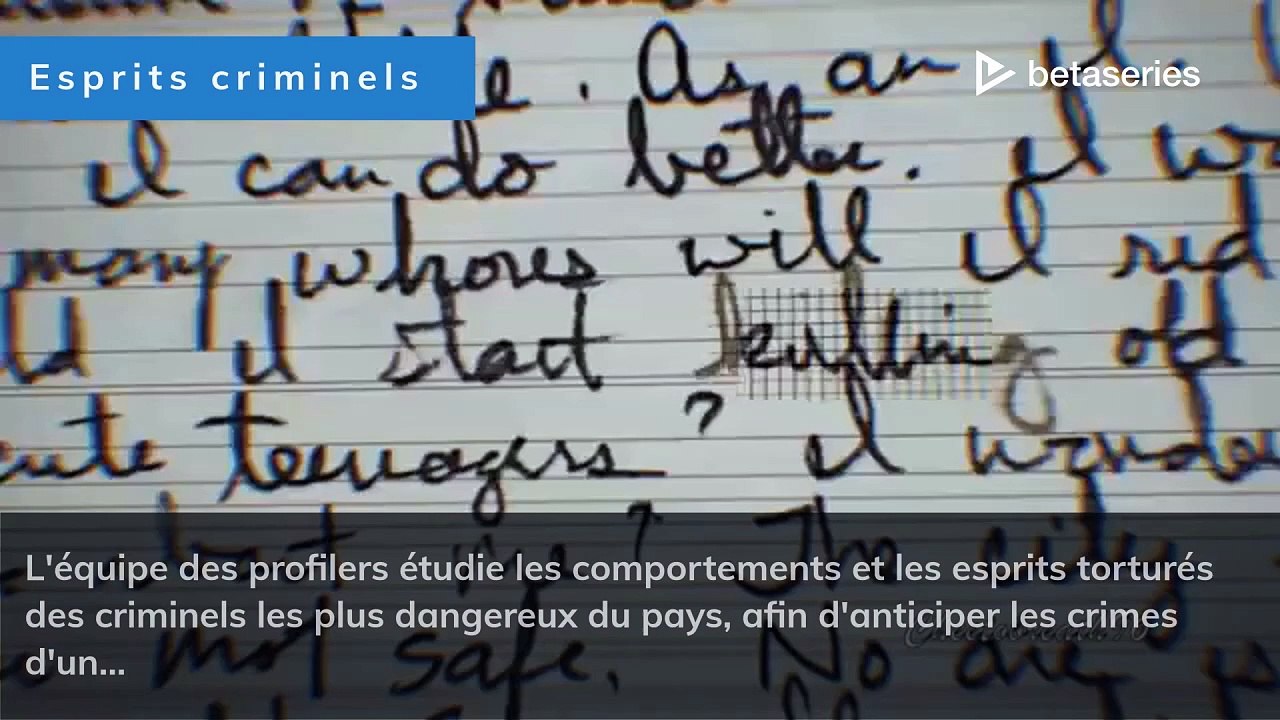 Esprits criminels
betaseries
e. As an I
I can do better. I wo
many whores will I rid
ld I start killing old
cute teenagers? I wonder
? The city
not safe. No one is
L'équipe des profilers étudie les comportements et les esprits torturés
des criminels les plus dangereux du pays, afin d'anticiper les crimes
d'un...